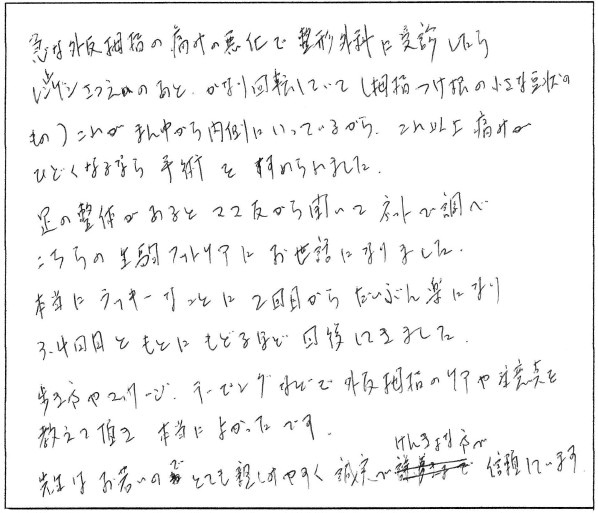 急な外反拇指の痛みの悪化で整形外科に受診したら
レントゲンのあと、かなり回転していて(拇指つけ根の小さな豆状の
もの)これがまん中から内側にいっているから、これ以上痛みが
ひどくなるなら手術をすすめられました。
足の整体があるとママ友から聞いてネットで調べ
こちらの生駒フットケアにお世話になりました。
本当にラッキーなことに2回目からだいぶん楽になり
3.4回目ともとにもどるほど回復してきました。
歩き方やマッサージ、テーピングなどで外反拇指のケアや注意点を
教えて頂き本当によかったです。
けんきょな方で
先生はお若いのでとても親しみやすく誠実で信頼しています。